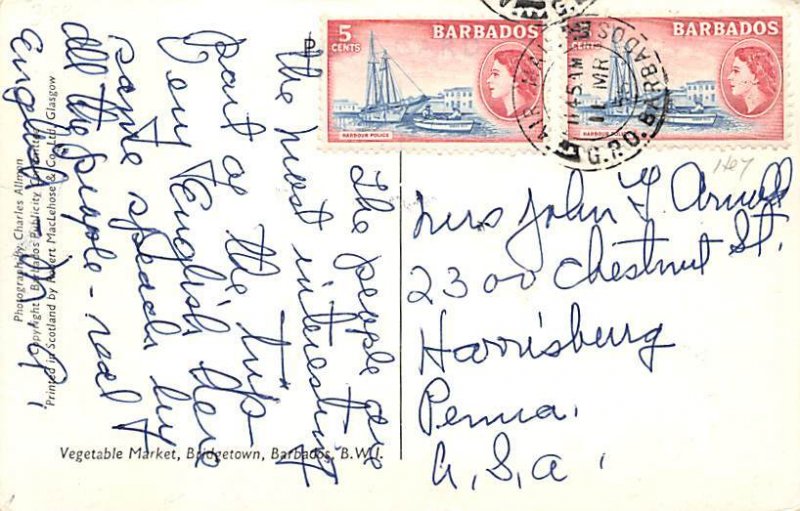 5
CENTS
BARBADOS
HARBOUR POLICE
CENTS
BARBADOS
HARBOUR POLICE
AIR MAIL
11 45 AM
11 MR
G.P.O. BARBADOS
P
The people are
the most interesting
part of the trip
Very English here
people speak by
all the people - real
English
Photograph by Charles Allmon
Copyright, Barbados Publicity Committee
Printed in Scotland by Robert MacLehose & Co. Ltd., Glasgow
Vegetable Market, Bridgetown, Barbados, B.W.I.
Mrs John Y. Arnold
2300 Chestnut St.
Harrisburg
Penna.
U.S.A.